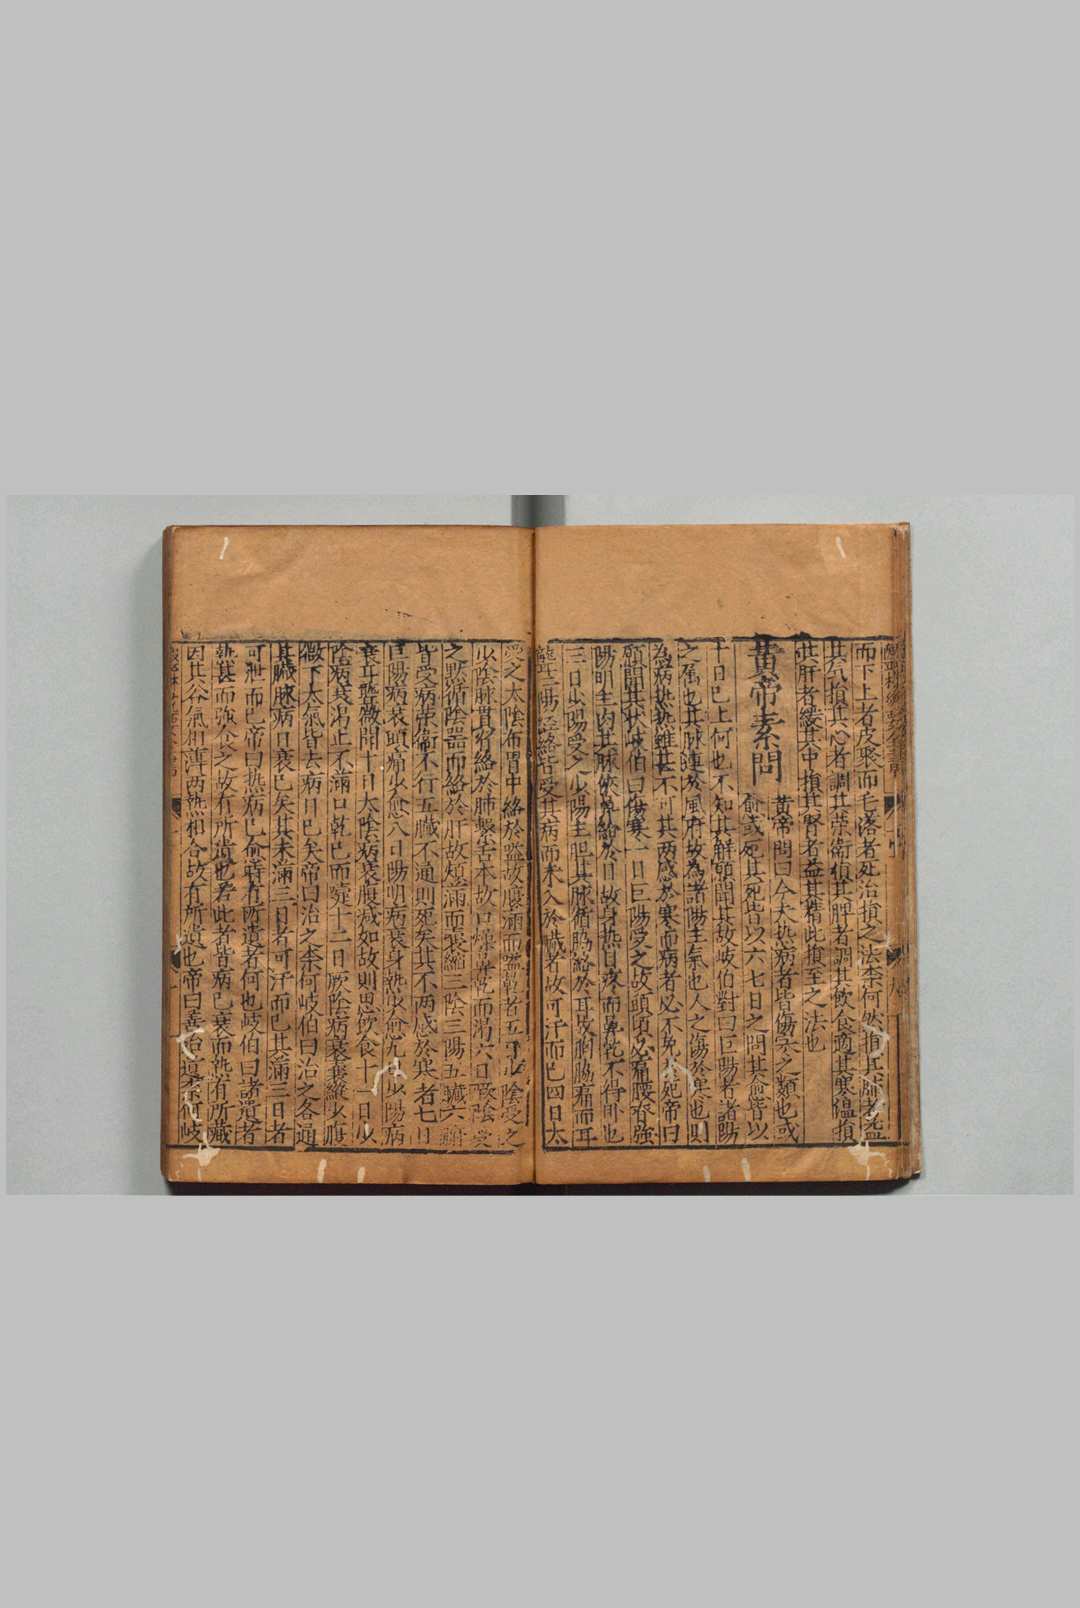 而下上者皮聚而毛落者死治損之法柰何然損其肺者益
其氣損其心者調其荣衛損其脾者調其飲食適其寒温損
其肝者緩其中損其腎者益其精此損至之法也
黄帝素問
黄帝問曰今夫热病者皆傷寒之類也或
愈或死其死皆以六七日之間其愈皆以
十日已上何也不知其解願聞其故岐伯對曰巨陽者諸陽
之属也其脉連於風府故為諸陽主氣也人之傷於寒也則
為病热热雖甚不死其两感於寒而病者必不免於死帝曰
願聞其状岐伯曰傷寒一日巨陽受之故頭項必痛腰脊強
陽明主肉其脉俠鼻絡於目故身热目疼而鼻乾不得卧也
三日少陽受之少陽主胆其脉循脇絡於耳故胸脇痛而耳
聾三陽經絡皆受其病而未入於臓者故可汗而已四日太
隂受之太隂布胃中絡於嗌故腹滿而嗌乾者五日少隂受之
少隂脉貫腎絡於肺繫舌本故口燥舌乾而渴六日厥隂受
之脉循隂器而絡於肝故煩滿而囊縮三隂三陽五臓六腑
皆受病荣衛不行五臓不通則死矣其不两感於寒者七日
巨陽病衰頭痛少愈八日陽明病衰身热少愈九日少陽病
衰耳聾微聞十日太隂病衰腹减如故則思飲食十一日少
隂病衰渴止不滿口乾已而嚏十二日厥隂病衰囊縱少腹
微下大氣皆去病日已矣帝曰治之柰何岐伯曰治之各通
其臓脉病日衰已矣其未滿三日者可汗而已其滿三日者
可泄而已帝曰热病已愈時有所遺者何也岐伯曰諸遺者
热甚而強食之故有所遺也若此者皆病已衰而热有所藏
因其谷氣相薄两热相合故有所遺也帝曰善治遺柰何岐